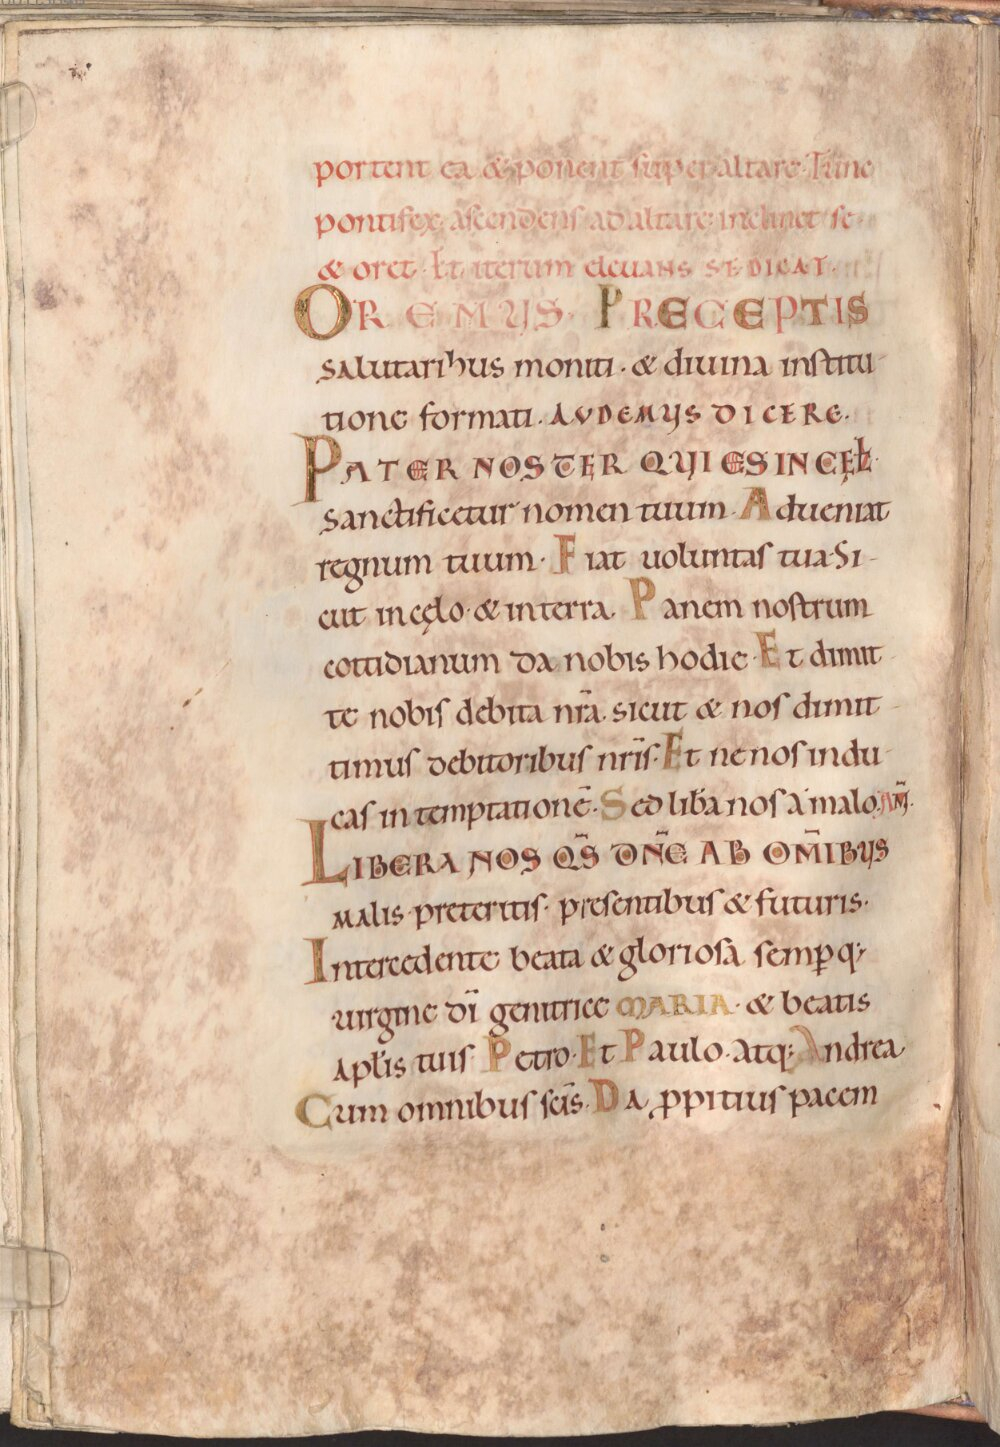 portent ea & ponent super altare. Tunc
pontifex ascendens ad altare inclinet se
& oret. Et iterum eleuans se dicat.
OREMUS. PRECEPTIS
salutaribus moniti. & diuina institu-
tione formati. AUDEMUS DICERE.
PATER NOSTER QUI ES IN CĘŁ.
sanctificetur nomen tuum. Adueniat
regnum tuum. Fiat uoluntas tua. Si-
cut in cęlo. & in terra. Panem nostrum
cottidianum da nobis hodie. Et dimit-
te nobis debita nr̄a. sicut & nos dimit-
timus debitoribus nr̄is. Et ne nos indu-
cas in temptationē. Sed lib̄a nos a malo. AM̄.
LIBERA NOS QS̄ DN̄E AB OM̄IBUS
malis. preteritis. presentibus & futuris.
Intercedente beata & gloriosa semp̱q;
uirgine dī genitrice MARIA. & beatis
apl̄is tuis Petro. Et Paulo. atq; Andrea.
Cum omnibus sc̄is. Da ꝓpitius pacem